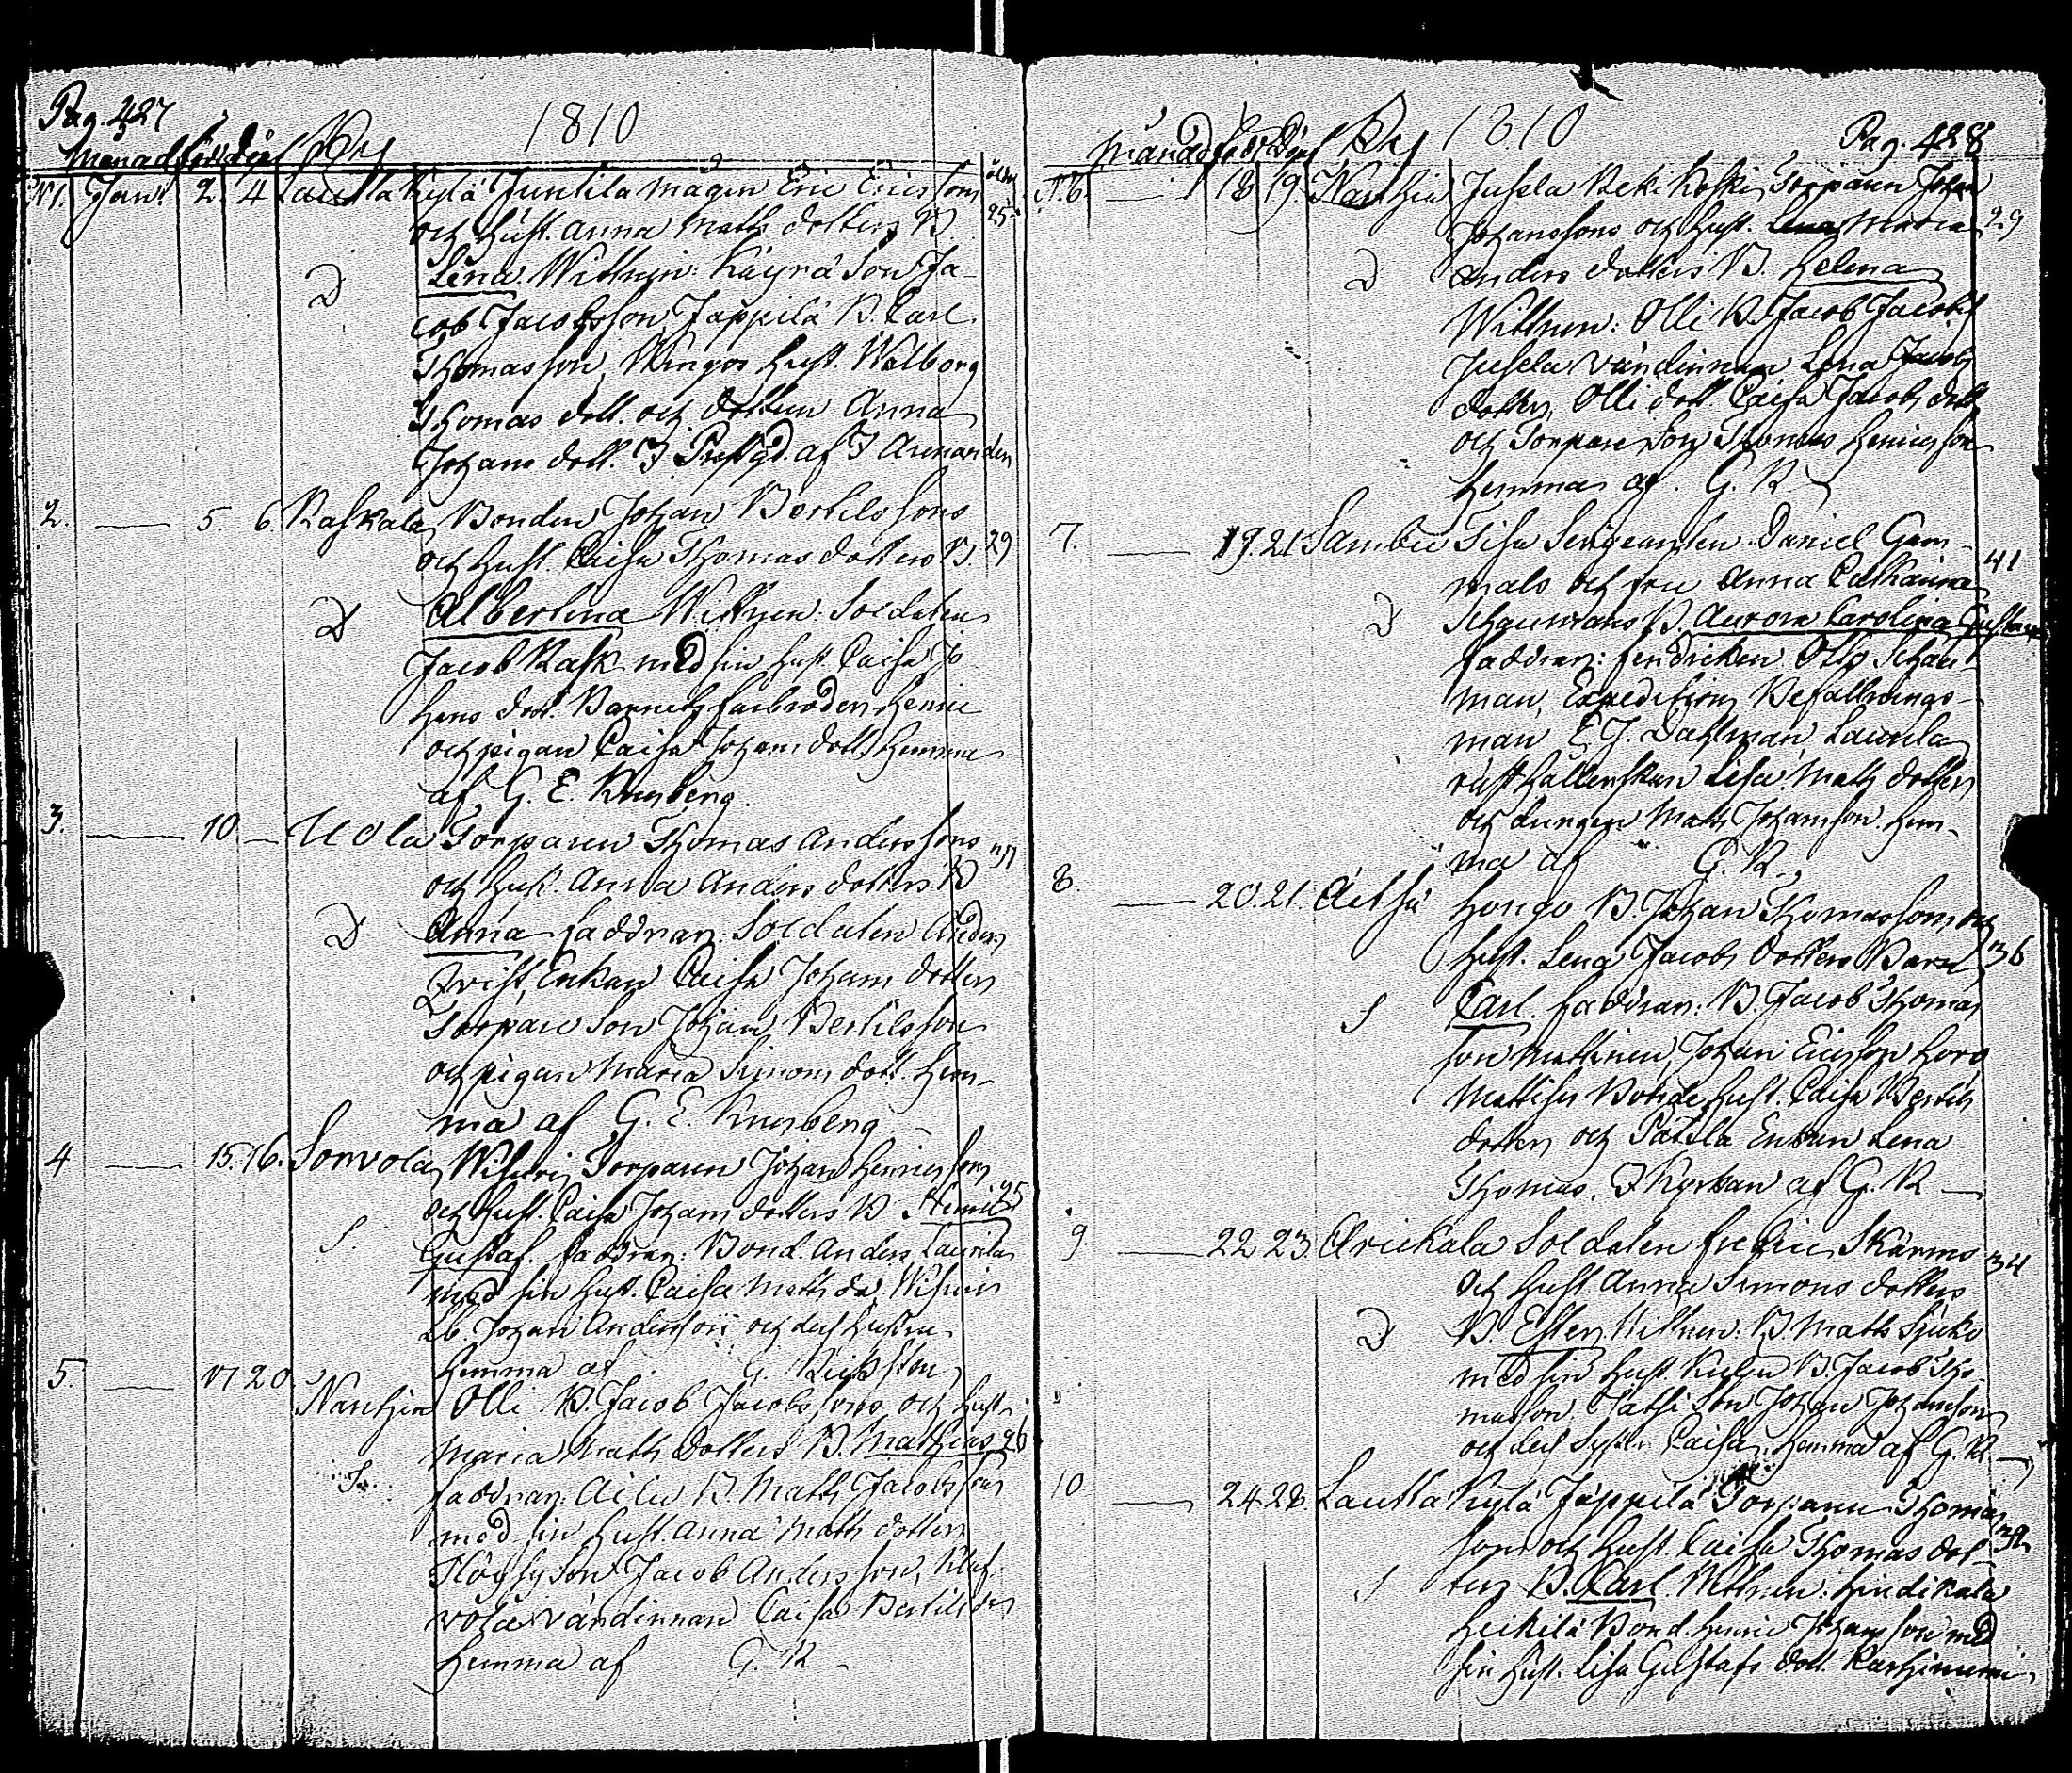 Pag. 427
1810
Månad född döpt By
N1. Jan. 2. 4 Lautta Kylä Juntila Mågen Eric Ericssons
och hust. Anna Matts dotters B. 25
D Lena Wittnen: Käyrä Son Ja-
cob Jacobsson, Jäppilä B. Carl
Thomasson, hust. Walborg
Thomas dott. och dottren Anna
Johans dott. I Prestgd. af I Arenander
2. — 5. 6. Raskala Bonden Johan Bertils sons
och hust. Caisa Thomas dotters B. 29
D Albertina Wittnen: Soldaten
Jacob Rask med sin hust. Caisa Jo
hans dott. Barnets farbroder Henric
och pigan Caisa Johans dott. hemma
af G. E. Krusberg.
3. — 10 — Uola Torparen Thomas Anderssons
och hust. Anna Anders dotters B
D Anna faddrar: Soldaten Anders
Qvist, Enkan Caisa Johans dotter
Torpare Son Johan Bertilsson
och pigan Maria Simons dott. hem-
ma af G. E. Krusberg
4 — 15. 16. Sorvola Torparen Johan Henrics sons
och hust. Caisa Johans dotters B Henric 25
S. Gustaf. faddrar: Bond. Anders Laurila
med sin hust. Caisa Matts do,
Johan Andersson och des hustru
hemma af G.
5. — 17 20 Nanhia Olli B. Jacob Jacobs sons och hust.
Maria Matts dotters B. Mathias 26
S. faddrar: B. Matts Jacobsson
med sin hust. Anna Matts dotter
Son Jacob Anders son,
värdinnan Caisa Bertils dr
hemma af G. K
Månad född Döpt By 1810 Pag. 428
N.6. — 18 19. Nanhia Jusela Torparen Johan
Johanssons och hust. Lena Maria 29
D Anders dotters B. Helena
Wittnen: Olli B. Jacob Jacobs
Jusela värdinnan Lena Jacobs
dotter, Olli dott. Caisa Jacobs dott
och Torpare Son Thomas Henricsson
hemma af. G. K
7. — 19. 21 Sambu Sergeanten Daniel Gam-
mals och fru Anna Catharina 41
D Schaumans B. Aurora Carolina Gustava
faddrar: fendricken Otto Schau
man, Expeditions Befallnings-
man E J. Dahlman, Laurila
rusthållerskan Lisa Matts dotter
och drengen Matts Johansson. hem-
ma af G. K.
8. — 20. 21. Äetsä Hongo B. Johan Thomassons och
hust. Lena Jacobs dotters Barn 36
S Carl. faddrar: B. Jacob Thomas
son Johan Ericsson
Bonde hust. Caisa Bertils
dotter och Enkan Lena
Thomas. I Kyrkan af G. K —
9. — 22 23. Arickala Soldaten Fredric Skärms 34
och hust. Anna Simons dotters
D B. Ester, Wittnen: B. Matts
med sin hust. B. Jacob Tho-
masson. Son Johan Johansson
och des Syster Caisa. hemma af G. K. —
10 — 24. 28 Lautta Kylä Jäppilä Torparen Thomas
sons och hust. Caisa Thomas dot- 32
S ters B. Carl. Wittnen: Hindikala
Heikilä Bond. Henric Johansson med
sin hust. Lisa Gustafs dott. Karhiniemi